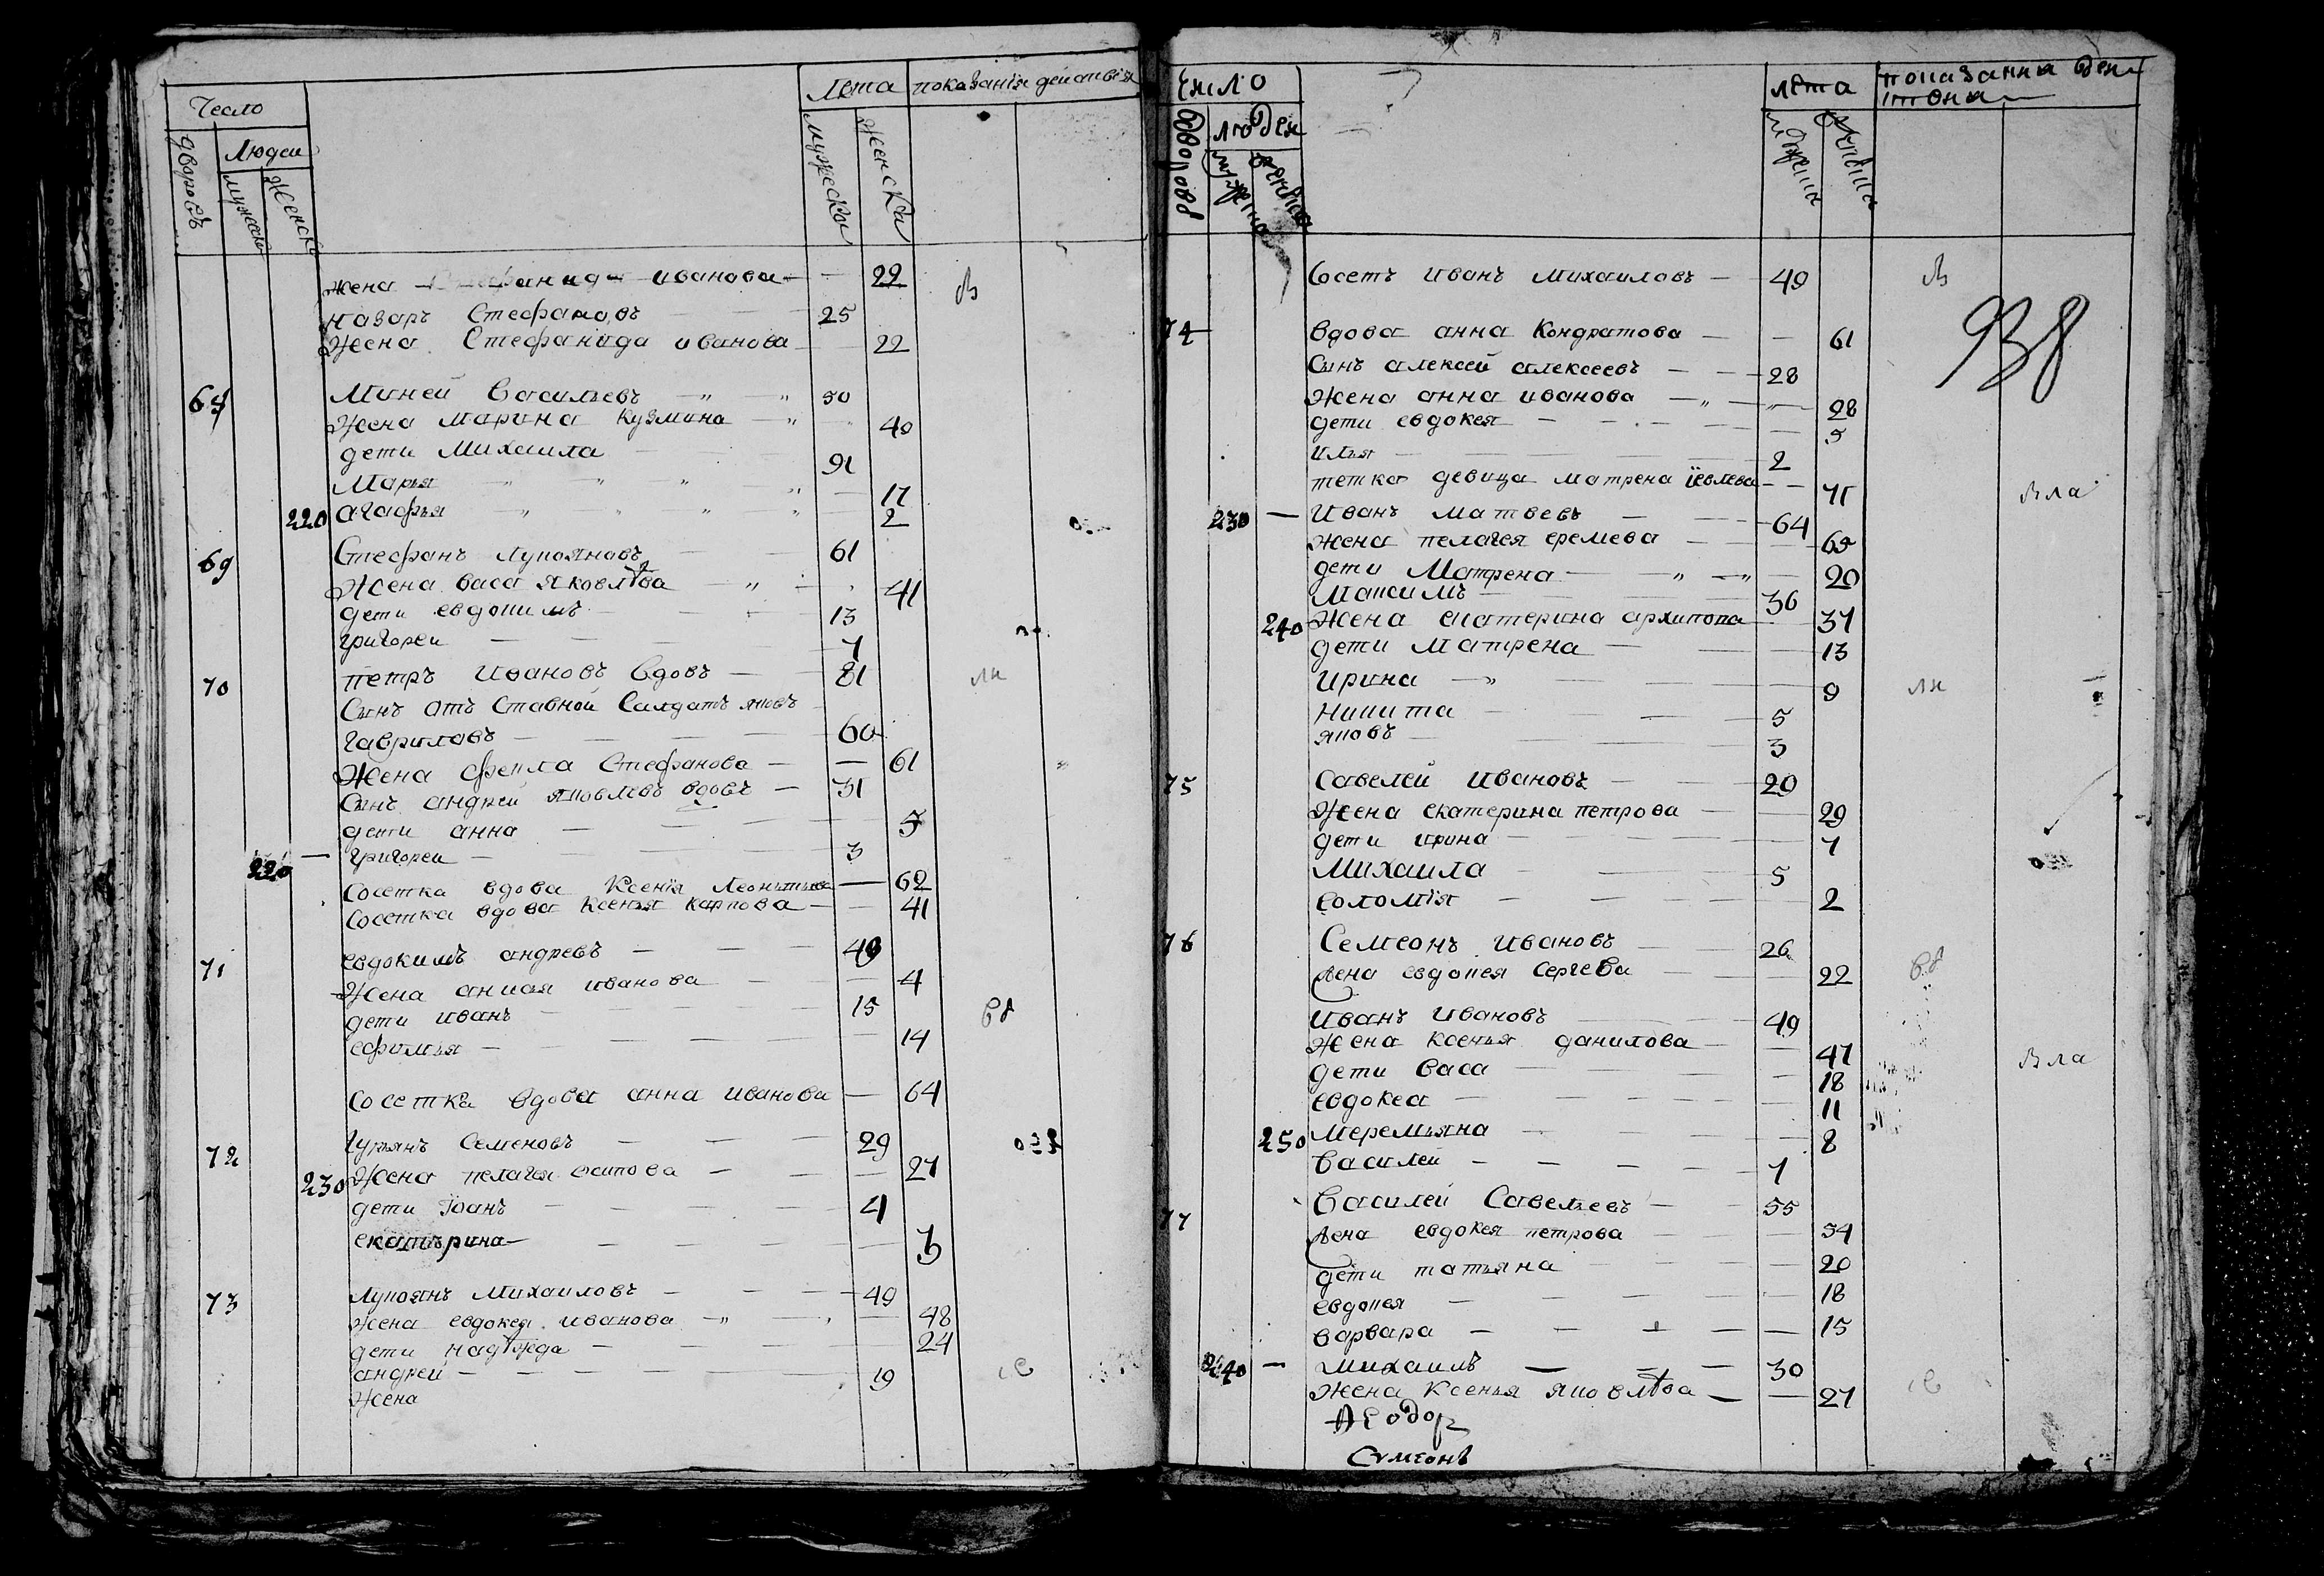 Число
Людеи
дворовъ
мужеска
женска
Лета
показанія деиствія
мужеска
женска
жена иванова — 22
назаръ Стефановъ 25
Жена Стефанида иванова 22
68 Миней Васильевъ 50
Жена марина кузмина 40
дети Михаила 91
Марья 17
220 агафья 2
69 Стефанъ лупояновъ 61
Жена васа яковлѣва 41
дети евдокимъ 13
григореи 7
70 петръ Ивановъ вдовъ 81
Сынъ отъ ставной Салдатъ яковъ
гавриловъ 60
Жена фекла Стефанова — 61
Сынъ андреи яковлевъ вдовъ — 31
дети анна 5
220 — григореи — 3
сосетка вдова Ксенїя — 62
сосетка вдова Ксенья карпова — 41
71 евдокимъ андревъ — 49
Жена иванова 4
дети иванъ 15
ефимья — 14
сосетка вдова анна иванова — 64
72 гурьянъ Семеновъ 29
230 Жена пелагея осипова — 27
дети Їоанъ 4
екатърина 3
73 Лупоянъ Михаиловъ — 49
Жена евдокея иванова 48
дети надѣжда 24
андреи 19
Жена
Число
людеи
дворовъ
лѣта
показанна
938
сосетъ иванъ михаиловъ — 49
74 вдова анна Кондратова — 61
Сынъ алексей алексеевъ — 28
Жена анна иванова 28
дети евдокея 5
илья 2
тетка девица матрена їевлева 71
230 — Иванъ матвевъ 64
жена пелагея еремева 69
дети Матрена 20
Максимъ 36
240 Жена екатерина архипопа 37
дети Матрена 13
Ирина 9
Никита 5
яковъ 3
75 Савелей ивановъ 29
Жена екатерина петрова 29
дети ирина 7
Михаила 5
соломїя 2
76 Семеонъ ивановъ 26
жена евдокея Сергева 22
иванъ ивановъ 49
Жена ксенья данилова 47
дети васа 18
евдокеа 11
250 меремьяна 8
Василеи 7
77 Василеи Савельевъ 55
жена евдокея петрова 54
дети татьяна 20
евдокея 18
варвара 15
240 — михаилъ 30
Жена Ксенья яковлѣва 27
Ѳеодор
Сумеонъ